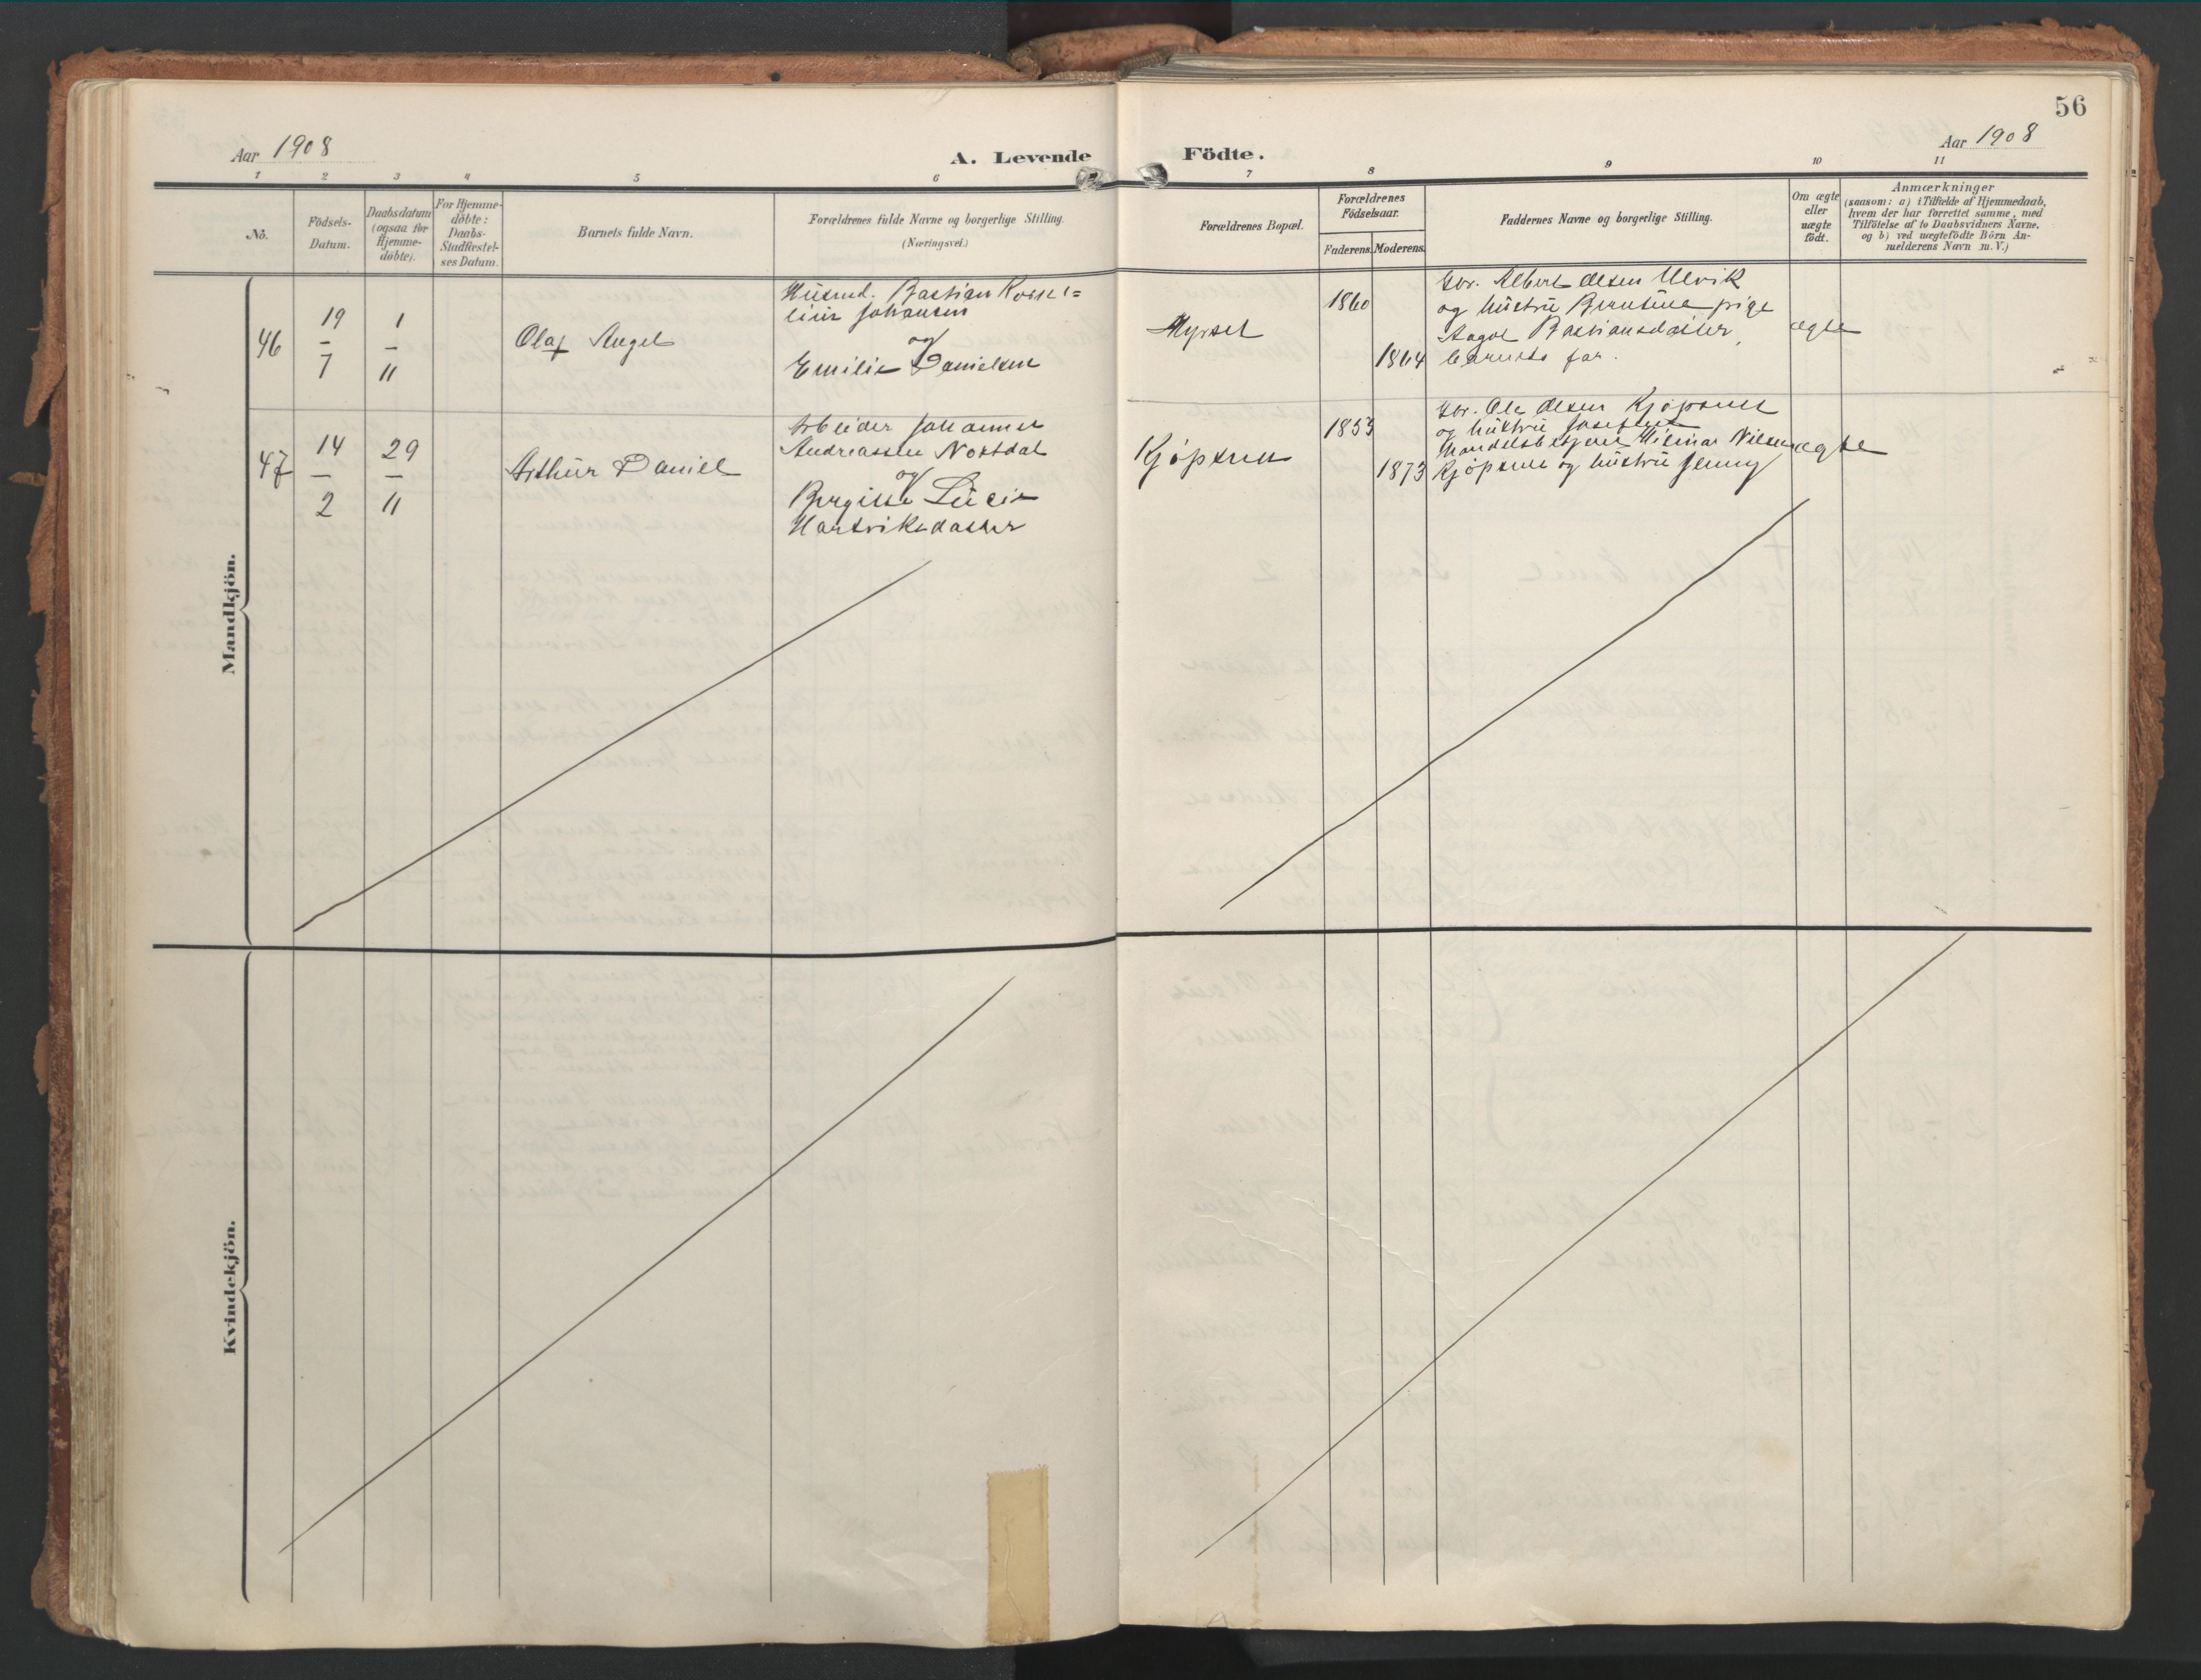 56
Aar 1908
A. Levende Födte.
Aar 1908
1 2 3 4 5 6 7 8 9 10 11
No.
Födsels-
Datum.
Daabsdatum
(ogsaa for
Hjemme-
döbte).
For Hjemme-
döbte:
Daabs-
Stadfæstel-
ses Datum.
Barnets fulde Navn.
Forældrenes fulde Navne og borgerlige Stilling.
(Næringsvei.)
Forældrenes Bopæl.
Forældrenes
Födselsaar.
Faderens. Moderens.
Faddernes Navne og borgerlige Stilling.
Om ægte
eller
uægte
födt.
Anmærkninger
(saasom: a) i Tilfælde af Hjemmedaab,
hvem der har forrettet samme, med
Tilföielse af to Daabsvidners Navne.
og b) ved uægtefödte Börn An-
melderens Navn m. V.)
Mandkjön.
46
19
–
7
1
–
11
Olaf Angel
Husmd. Bastian
Johansen
og
Emilie Danielsen
Myrset
1860
1864
Gbr. Albert Olsen Ulvik
og hustru Berntine pige
Aagot Bastiansdatter,
barnets far.
ægte
47
14
–
2
29
–
11
Arthur Daniel
Arbeider Johannes
Andreassen
og
Bergitte Lucie
Hartviksdatter
Kjöpsnes
1853
1873
Gbr. Ole Olsen Kjöpsnes
og hustru
Hilmar Nilsen
Kjöpsnes og hustru Jenny
ægte
Kvindekjön.